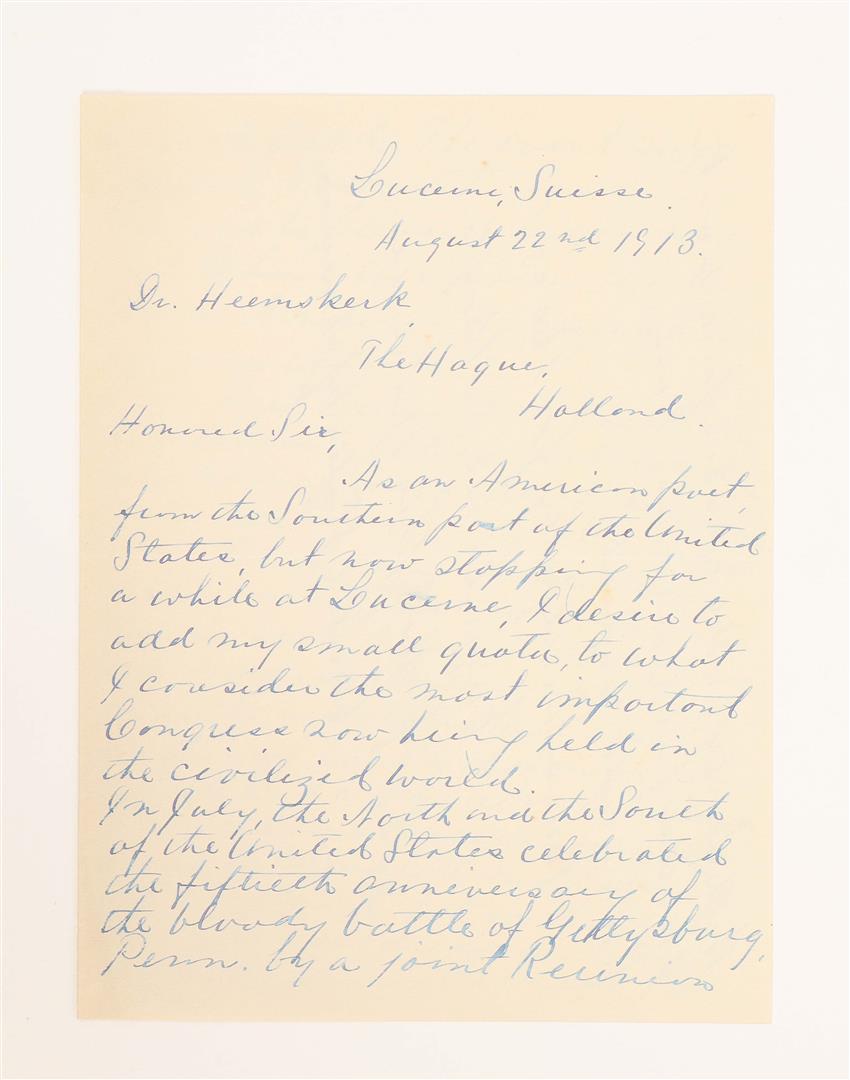 Lucerne, Suisse.
August 22nd 1913.
Dr. Heemskerk,
The Hague,
Holland.
Honored Sir,
As an American poet,
from the Southern part of the United
States, but now stopping for
a while at Lucerne, I desire to
add my small quota, to what
I consider the most important
Congress now being held in
the civilized world.
In July, the North and the South
of the United States celebrated
the fiftieth anniversary of
the bloody battle of Gettysburg,
Penn. by a joint Reunion